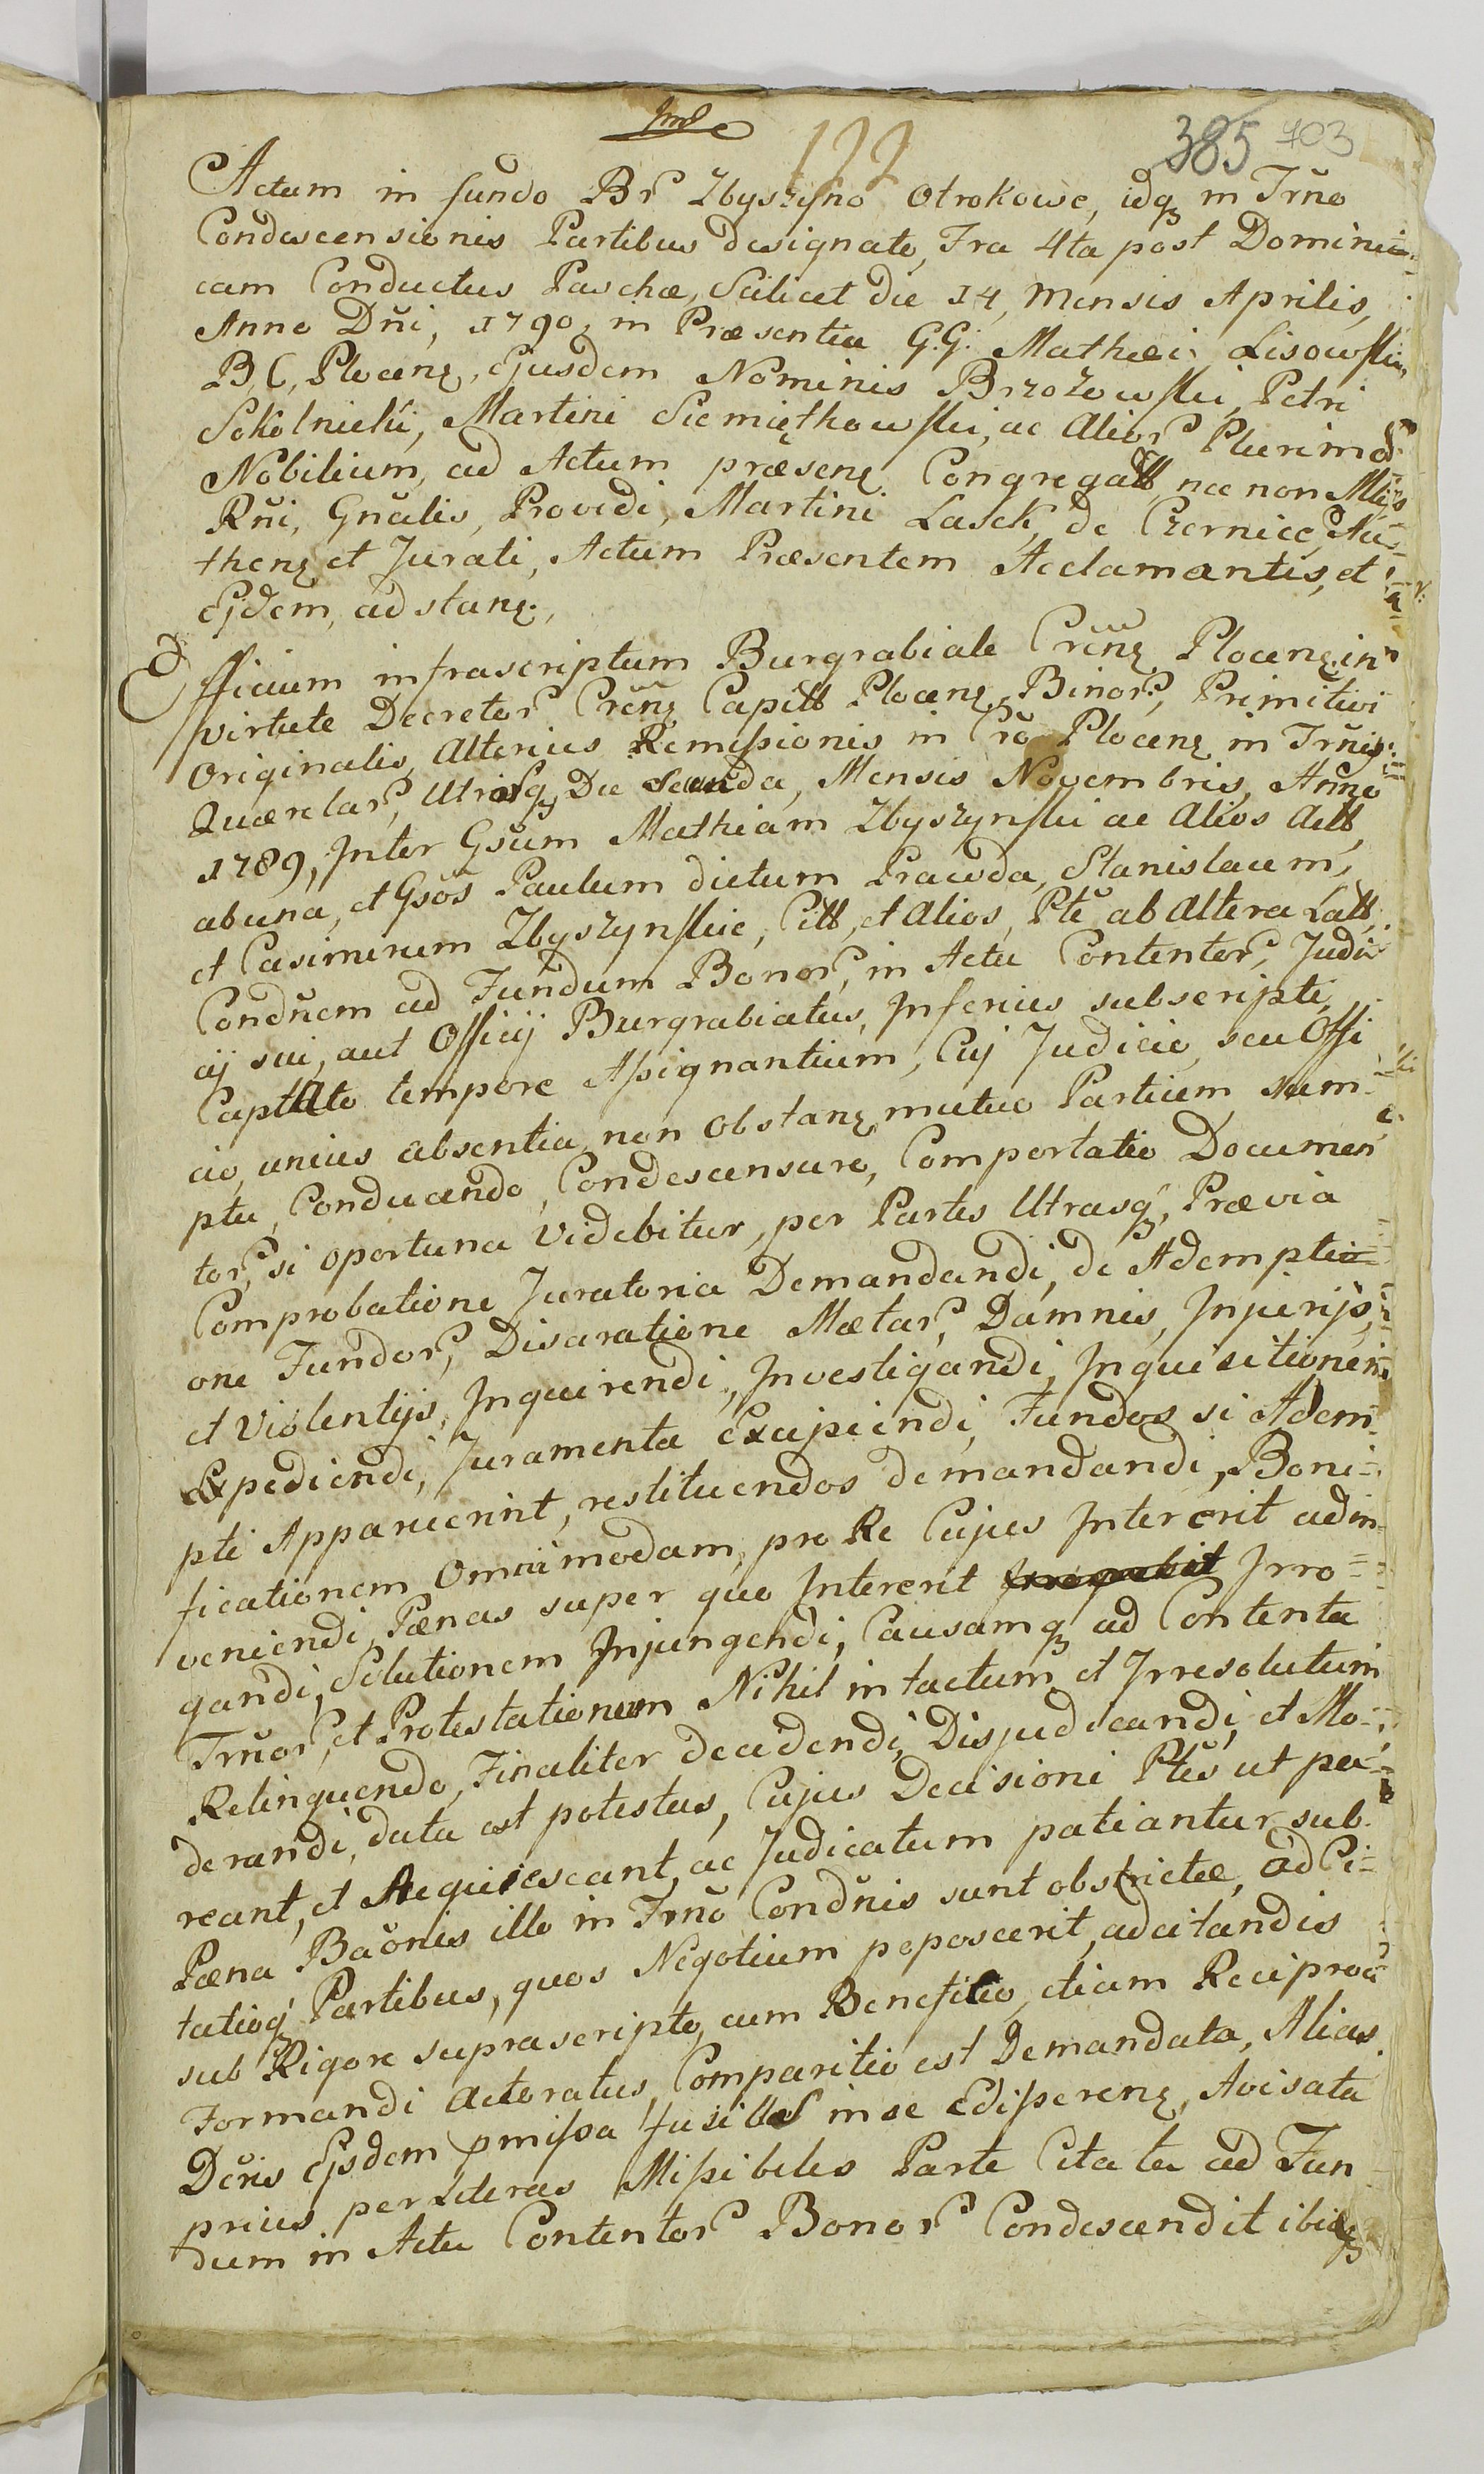 122
385 703
Actum in fundo Br. Zbyszyno Otrokowe, idq; in Trno
Condescensionis Partibus designato, Fra 4ta post Domini-
cam Conductus Paschæ, Scilicet die 14, Mensis Aprilis,
Anno Dñi, 1790, in Præsentia G.G. Mathæi Lisowski
B, C, Plocenẹ, Ejusdem Nominis Brzozowski, Petri
Sokolnicki, Martini Siemiętkowski, ac Alior. Plurimo
Nobilium, ad Actum præsenẹ Congregatt, nec non Mtis
Rñi, Gñalis, Providi, Martini Lasek, de Czernice, Au-
thenẹ et Jurati, Actum Præsentem Acclamantis, et
Ejdem, ad stanẹ.,
Officium infrascriptum Burgrabiale Crẽnẹ Plocenẹ in
virtute Decretor. Crẽnẹ Capitt Plocenẹ Binor., Primitivi
Originalis, Alterius Remissionis in Crõ Plocenẹ in Trñis
Quærelar., Utrisq; Die Secunda, Mensis Novembris, Anno
1789, Inter Gsum Mathiam Zbyszynski ac Alios Actt,
ab una, et Gsos Paulum dictum Prawda, Stanislaum,
et Casimirum Zbyszynskie, Citt, et Alios, Pte ab Altera Latt,
Condñem ad Fundum Bonor., in Actu Contentor., Judi
cij sui, aut Officij Burgrabiatus, Inferius subscripti,
Captato tempore Assignantium, Cuj Judicio, seu Offi
cio, unius absentia non obstanẹ mutuo Partium sum-
ptu, Conducendo, Condescensuro, Comportatio Documen
tor, si oportuna videbitur, per Partes Utrasq;, Prævia
Comprobatione Juratoria Demandandi, de Adempti-
one Fundor., Disaratione Mætar., Damnis, Injurijs,
et Violentijs, Inquirendi, Investigandi, Inquisitionem
Expediendi, Juramenta Excipiendi, Fundos si Adem-
pti Apparuerint, restituendos demandandi, Boni-
ficationem Omnimodam, pro Re Cujus Intererit adin-
veniendi, Pænas super quo Intererit Irrogabit Irro-
gandi, Solutionem Injungendi, Causamq; ad Contenta
Trñor., et Protestationum Nihil intactum et Irresolutum
Relinquendo, Finaliter decidendi, Disjudicandi, et Mo-
derandi, data est potestas, Cujus Decisioni Ptes ut pa-
reant, et Acquiescant, ac Judicatum patiantur sub
Pæna Bañonis illo in Trño Condñis sunt obstrictæ, ad Ci-
tatisq; Partibus, quos Negotium poposcerit, adcitandis
sub Rigore suprascripto, cum Beneficio, etiam Reciproci
Formandi Actoratus, Comparitio est Demandata, Alias
Dcris Ejsdem pmissa fusius in se Edisserenẹ, Avisata
prius per Literas Missibiles Parte Citata ad Fun
dum in Actu Contentor. Bonor. Condescendit ibiq;